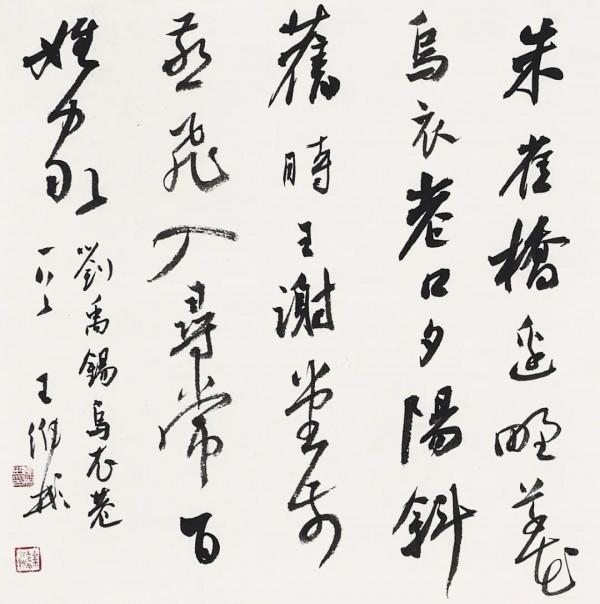 朱雀橋邊野草花
烏衣巷口夕陽斜
舊時王謝堂前
燕飛入尋常百
姓家
劉禹錫烏衣巷
王維